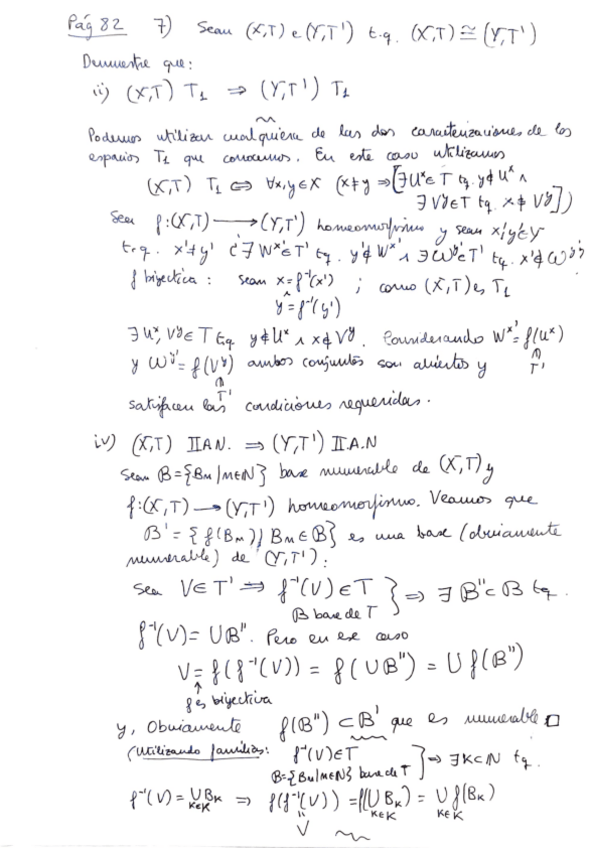 Pág 82 7) Sean (X,T) e (Y,T') t.q. (X,T)≅(Y,T')
Demuestre que:
ii) (X,T) T₁ ⇒ (Y,T') T₁
Podemos utilizar cualquiera de las dos caracterizaciones de los
espacios T₁ que conocemos. En este caso utilizamos
(X,T) T₁ ⇔ ∀x,y∈X (x≠y ⇒[∃Uˣ∈T tq. y∉Uˣ ∧
∃Vʸ∈T tq. x∉Vʸ])
Sea f:(X,T)⟶(Y,T') homeomorfismo y sean x',y'∈Y
t.q. x'≠y' ¿∃W^x'∈T' tq. y'∉W^x' ∧ ∃W^y'∈T' tq. x'∉W^y'?
f biyectiva: sean x=f⁻¹(x') ; como (X,T) es T₁
y=f⁻¹(y')
∃Uˣ,Vʸ∈T t.q y∉Uˣ ∧ x∉Vʸ. Considerando W^x'=f(Uˣ)
y W^y'=f(Vʸ) ambos conjuntos son abiertos y T'
T'
satisfacen las condiciones requeridas.
iv) (X,T) IIAN. ⇒ (Y,T') II.A.N
Sean B={Bₙ/n∈N} base numerable de (X,T) y
f:(X,T)⟶(Y,T') homeomorfismo. Veamos que
B'={f(Bₙ)/Bₙ∈B} es una base (obviamente
numerable) de (Y,T').
Sea V∈T' ⇒ f⁻¹(V)∈T } ⇒ ∃B''⊂B tq.
B base de T
f⁻¹(V)=∪B''. Pero en ese caso
V=f(f⁻¹(V))=f(∪B'')=∪f(B'')
↑
f es biyectiva
y, Obviamente f(B'')⊂B' que es numerable □
(Utilizando familias: f⁻¹(V)∈T
B={Bₙ/n∈N} base de T } ⇒ ∃K⊂N tq.
f⁻¹(V)=∪Bₖ ⇒ f(f⁻¹(V))=f(∪Bₖ)=∪f(Bₖ)
k∈K k∈K k∈K
V